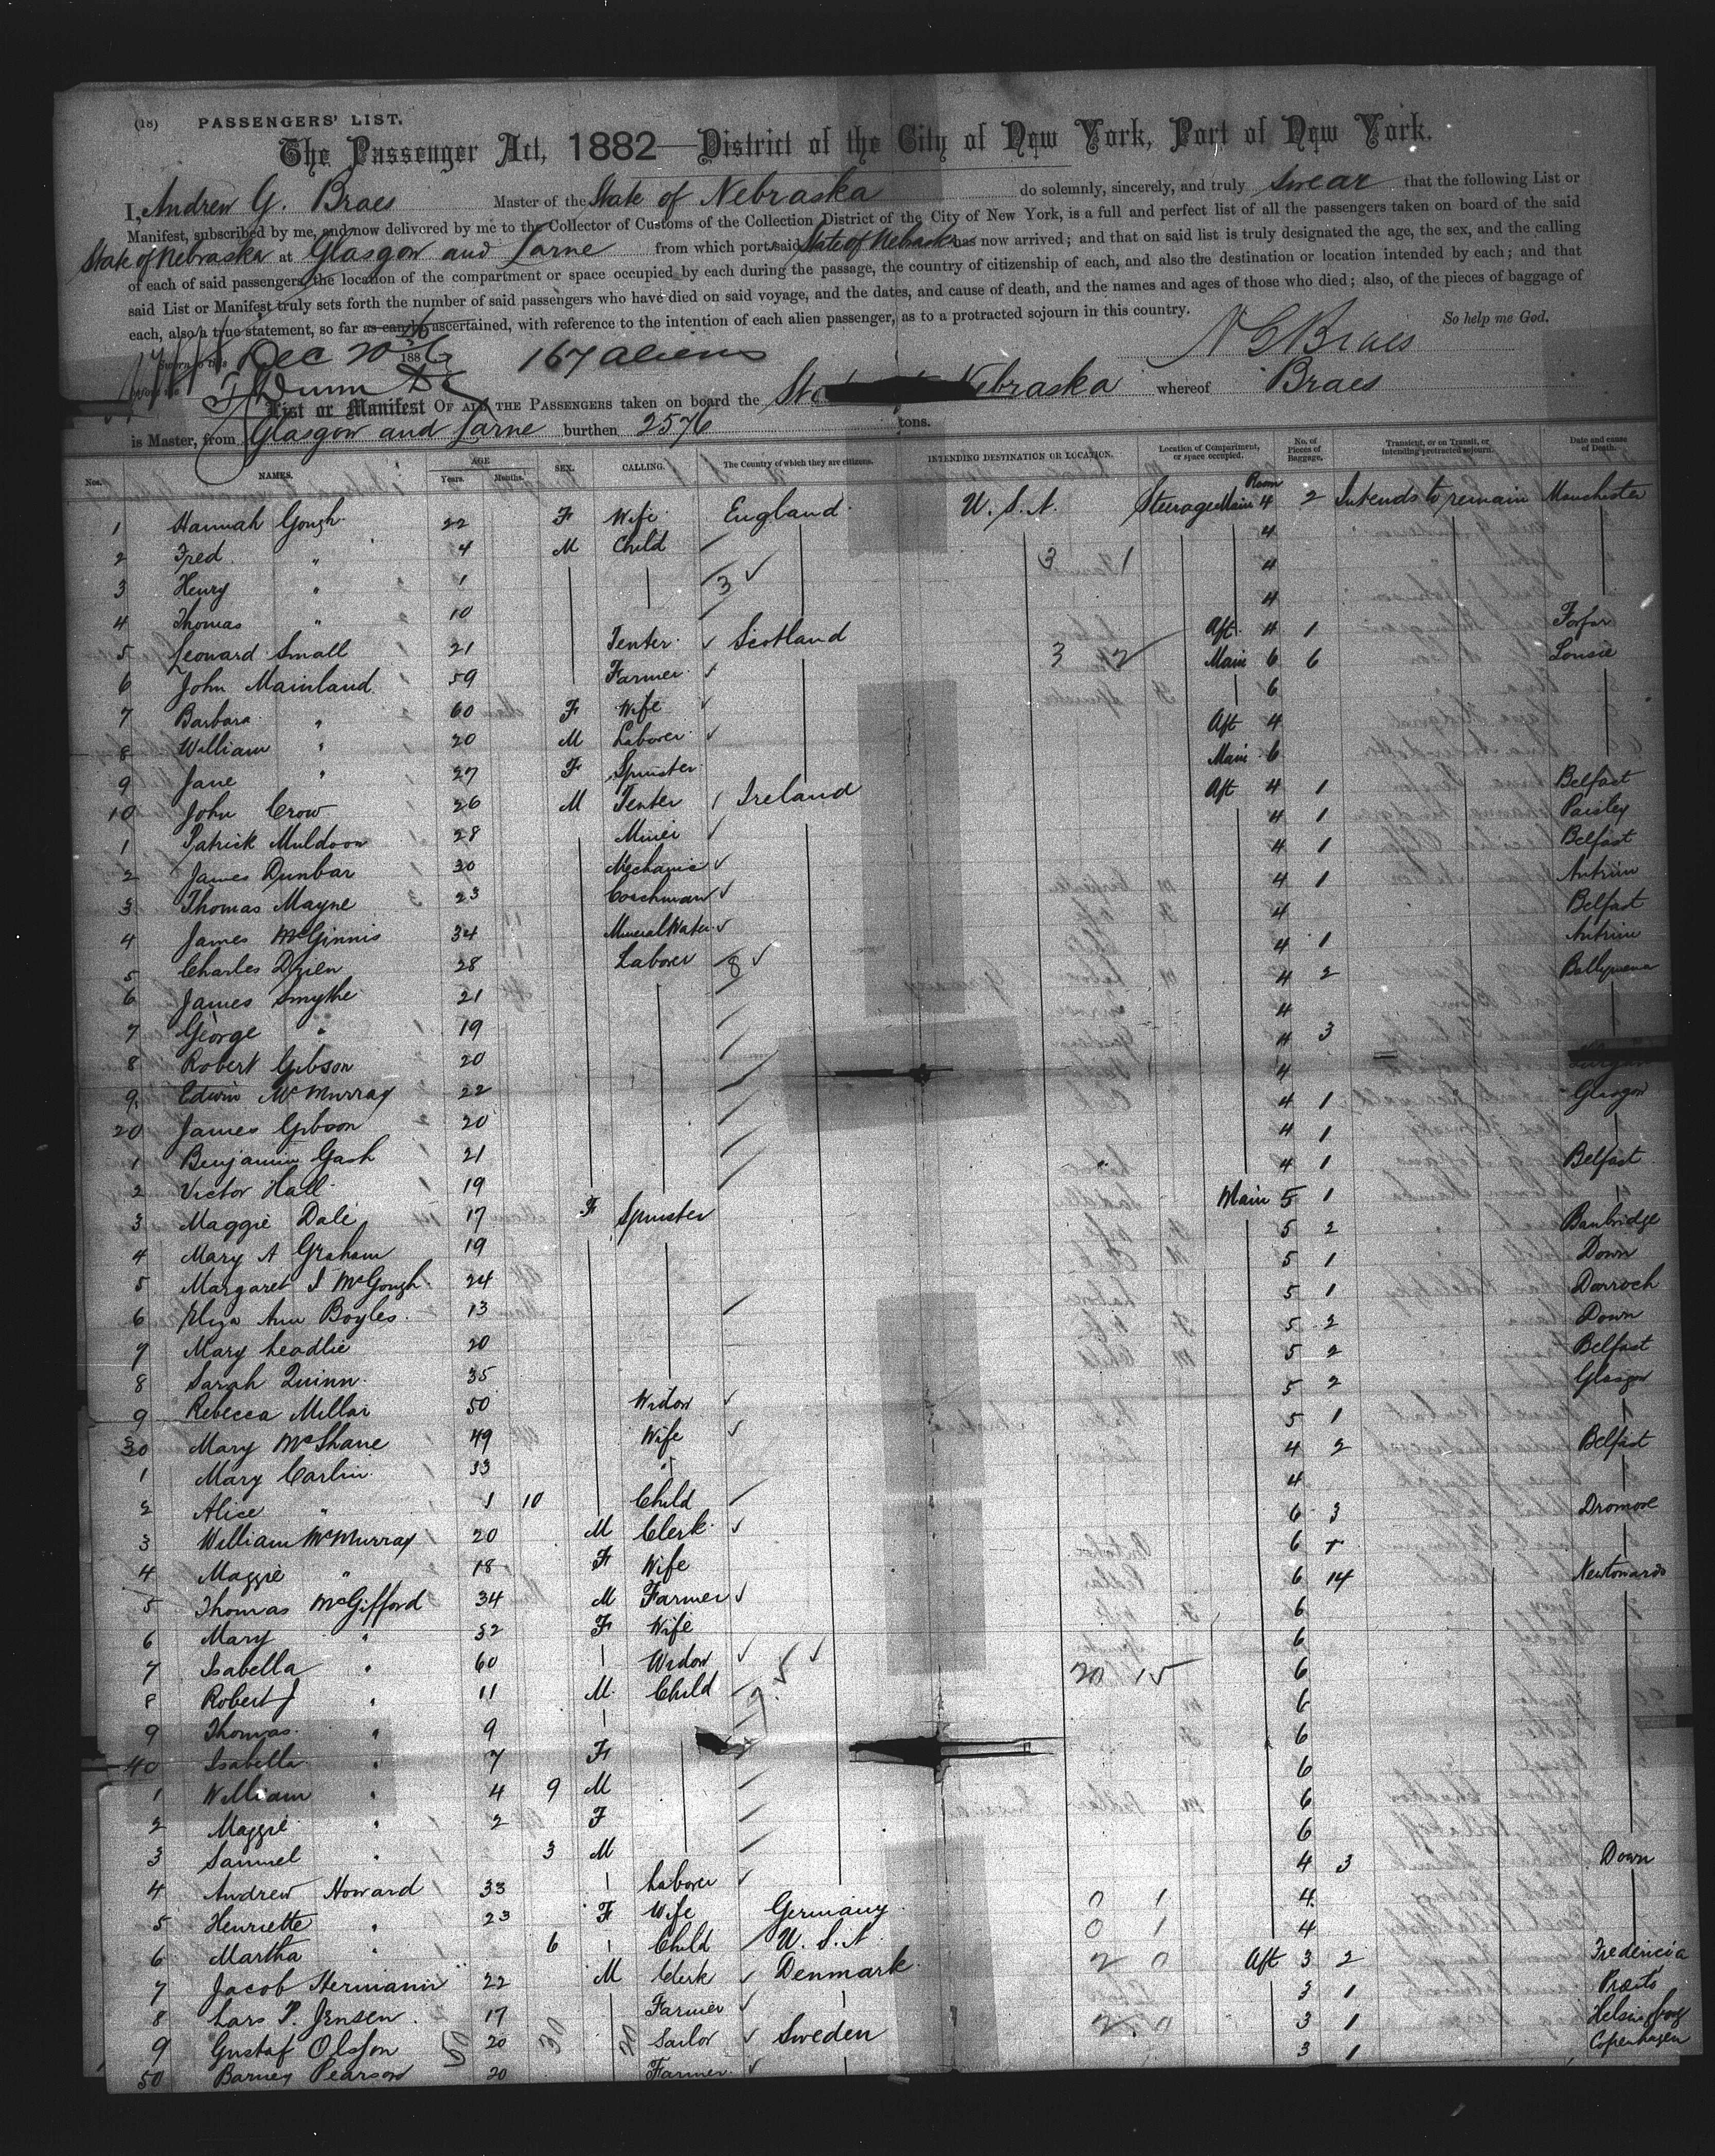 (18) PASSENGERS' LIST.
The Passenger Act, 1882—District of the City of New York, Port of New York.
I, Andrew G. Braes Master of the State of Nebraska do solemnly, sincerely, and truly swear that the following List or
Manifest, subscribed by me, and now delivered by me to the Collector of Customs of the Collection District of the City of New York, is a full and perfect list of all the passengers taken on board of the said
State of Nebraska at Glasgow and Larne from which port said State of Nebraska has now arrived; and that on said list is truly designated the age, the sex, and the calling
of each of said passengers, the location of the compartment or space occupied by each during the passage, the country of citizenship of each, and also the destination or location intended by each; and that
said List or Manifest truly sets forth the number of said passengers who have died on said voyage, and the dates, and cause of death, and the names and ages of those who died; also, of the pieces of baggage of
each, also a true statement, so far as can be ascertained, with reference to the intention of each alien passenger, as to a protracted sojourn in this country. So help me God.
Sworn to this Dec 20 1886 167 aliens Braes
List or Manifest OF ALL THE PASSENGERS taken on board the State of Nebraska whereof Braes
is Master, from Glasgow and Larne burthen 2576 tons.
Nos. NAMES. AGE Years. Months. SEX. CALLING. The Country of which they are citizens. INTENDING DESTINATION OR LOCATION. Location of Compartment, or space occupied. No. of Pieces of Baggage. Transient, or on Transit, or intending protracted sojourn. Date and cause of Death.
1 Hannah Gough 22 F Wife England U.S.A. Steerage Main Room 4 2 Intends to remain Manchester
2 Fred " 4 M Child 4
3 Henry " 1 4
4 Thomas " 10 4
5 Leonard Small 21 Tenter Scotland Aft 4 1 Forfar
6 John Mainland 59 Farmer Main 6 6
7 Barbara " 60 F Wife 6
8 William " 20 M Laborer Aft 4
9 Jane " 27 F Spinster Main 6
10 John Crow 26 M Tenter Ireland Aft 4 1 Belfast
1 Patrick Muldoon 28 Miner 4 1 Paisley
2 James Dunbar 30 Mechanic 4 1 Belfast
3 Thomas Mayne 23 Coachman 4 1 Antrim
4 James McGinnis 34 Mineral Water 4 Belfast
5 Charles 28 Laborer 4 1 Antrim
6 James Smythe 21 4 2 Ballymena
7 George " 19 4
8 Robert Gibson 20 4 3
9 Edwin McMurray 22 4
20 James Gibson 20 4 1 Glasgow
1 Benjamin Gash 21 4 1
2 Victor Hall 19 4 1 Belfast
3 Maggie Dale 17 F Spinster Main 5 1
4 Mary A Graham 19 5 2 Banbridge
5 Margaret J McGough 24 5 1 Down
6 Eliza Ann Boyles 13 5 1 Darroch
7 Mary Leadlie 20 5 2 Down
8 Sarah Quinn 35 5 2 Belfast
9 Rebecca Millar 50 Widow 5 2 Glasgow
30 Mary McShane 49 Wife 5 1
1 Mary Carlin 33 " 4 2 Belfast
2 Alice " 1 10 Child 4
3 William McMurray 20 M Clerk 6 3 Dromore
4 Maggie " 18 F Wife 6
5 Thomas McGifford 34 M Farmer 6 14 Newtonards
6 Mary " 32 F Wife 6
7 Isabella " 60 Widow 6
8 Robert J " 11 M Child 6
9 Thomas " 9 6
40 Isabella " 7 F 6
1 William " 4 9 M 6
2 Maggie " 2 F 6
3 Samuel " 3 M 6
4 Andrew Howard 33 Laborer 4 3 Down
5 Henriette " 23 F Wife Germany 4
6 Martha " 6 Child U.S.A. 4
7 Jacob Hermann 22 M Clerk Denmark Aft 3 2 Fredericia
8 Lars P. Jensen 17 Farmer 3 1
9 Gustaf Olsson 20 Sailor Sweden 3 1 Helsingborg
50 Barney Pearson 20 Farmer 3 1 Copenhagen